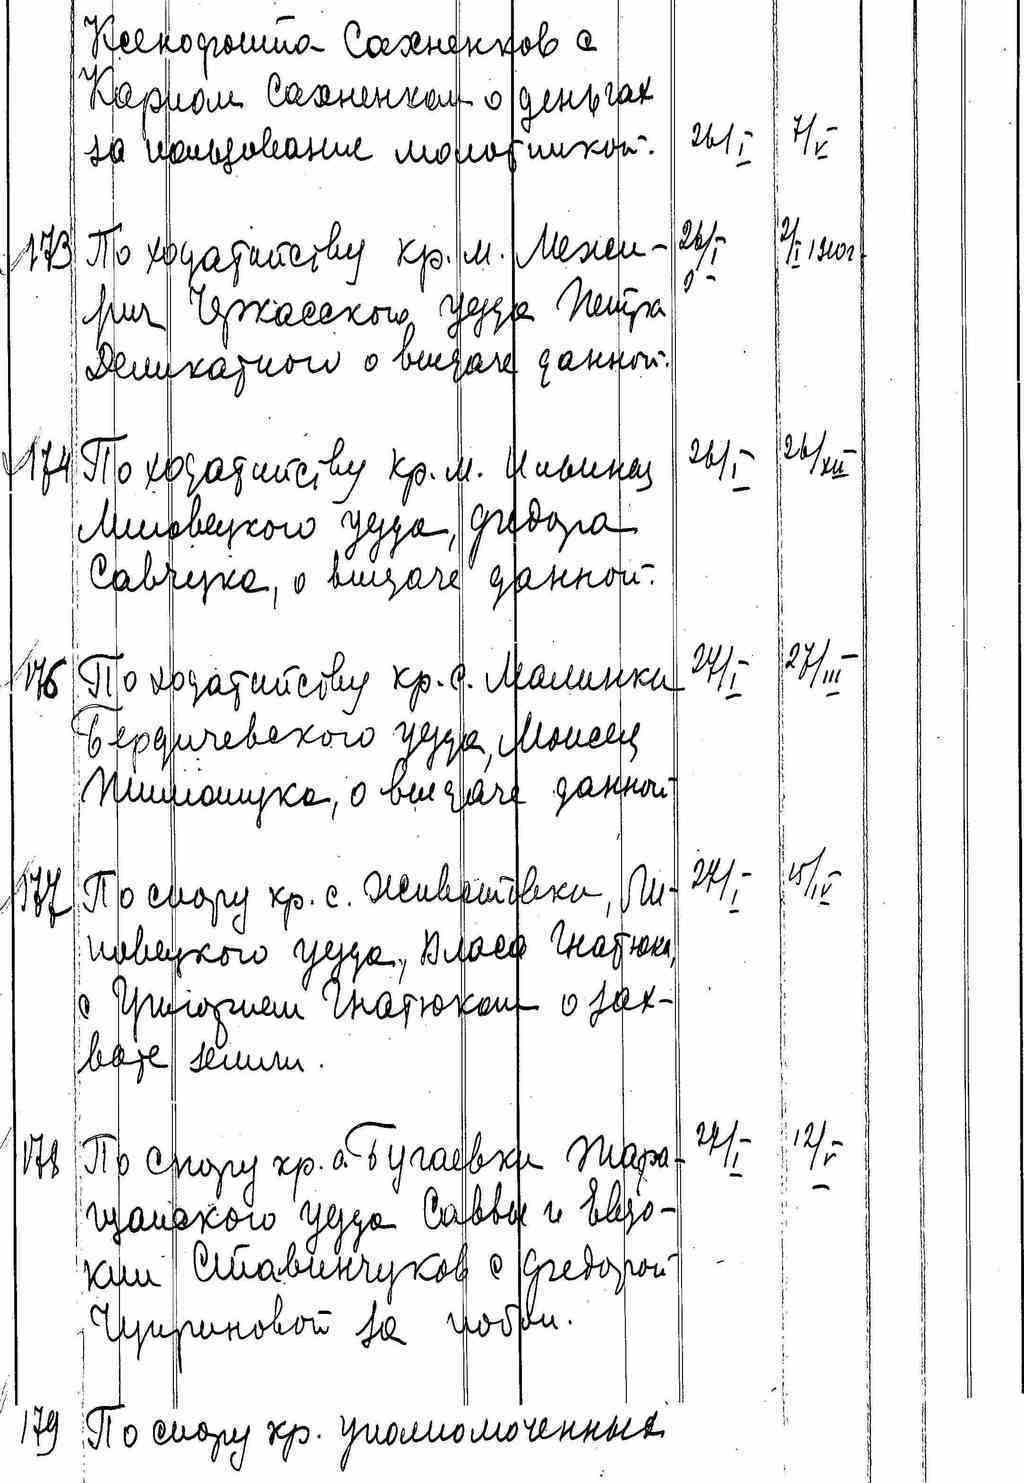 Ксенофонта Сахненков с
Карпом Сахненком о деньгах
за пользование молотилкой. 26/I 7/V
173 По ходатайству кр. м. Межи- 26/I 2/I 1910г.
рич Черкасского уезда Петра
Деликатного о выдаче данной.
174 По ходатайству кр. м. Ильинец 26/I 26/XII
Липовецкого уезда, Федора
Савчука, о выдаче данной.
176 По ходатайству кр. с. Малинки 27/I 27/III
Бердичевского уезда, Моисея
о выдаче данной
177 По спору кр. с. Животовки, Ли- 27/I 15/IV
повецкого уезда, Власа Гнатюка,
с Григорием Гнатюком о зах-
вате земли.
178 По спору кр. с. Бугаевки Тара- 27/I 12/V
щанского уезда Саввы и Евдо-
кии Ставинчуков с Федорой
Чуприновой за побои.
179 По спору кр. уполномоченных